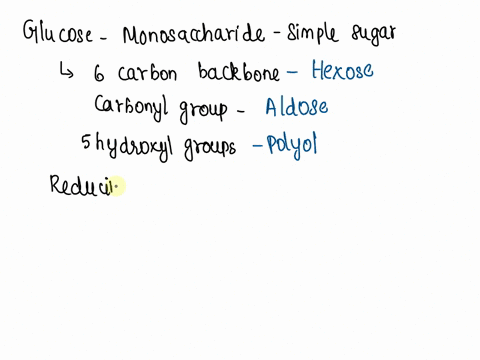 Glucose - Monosaccharide - Simple sugar
↳ 6 carbon backbone - Hexose
Carbonyl group - Aldose
5 hydroxyl groups - Polyol
Reduci